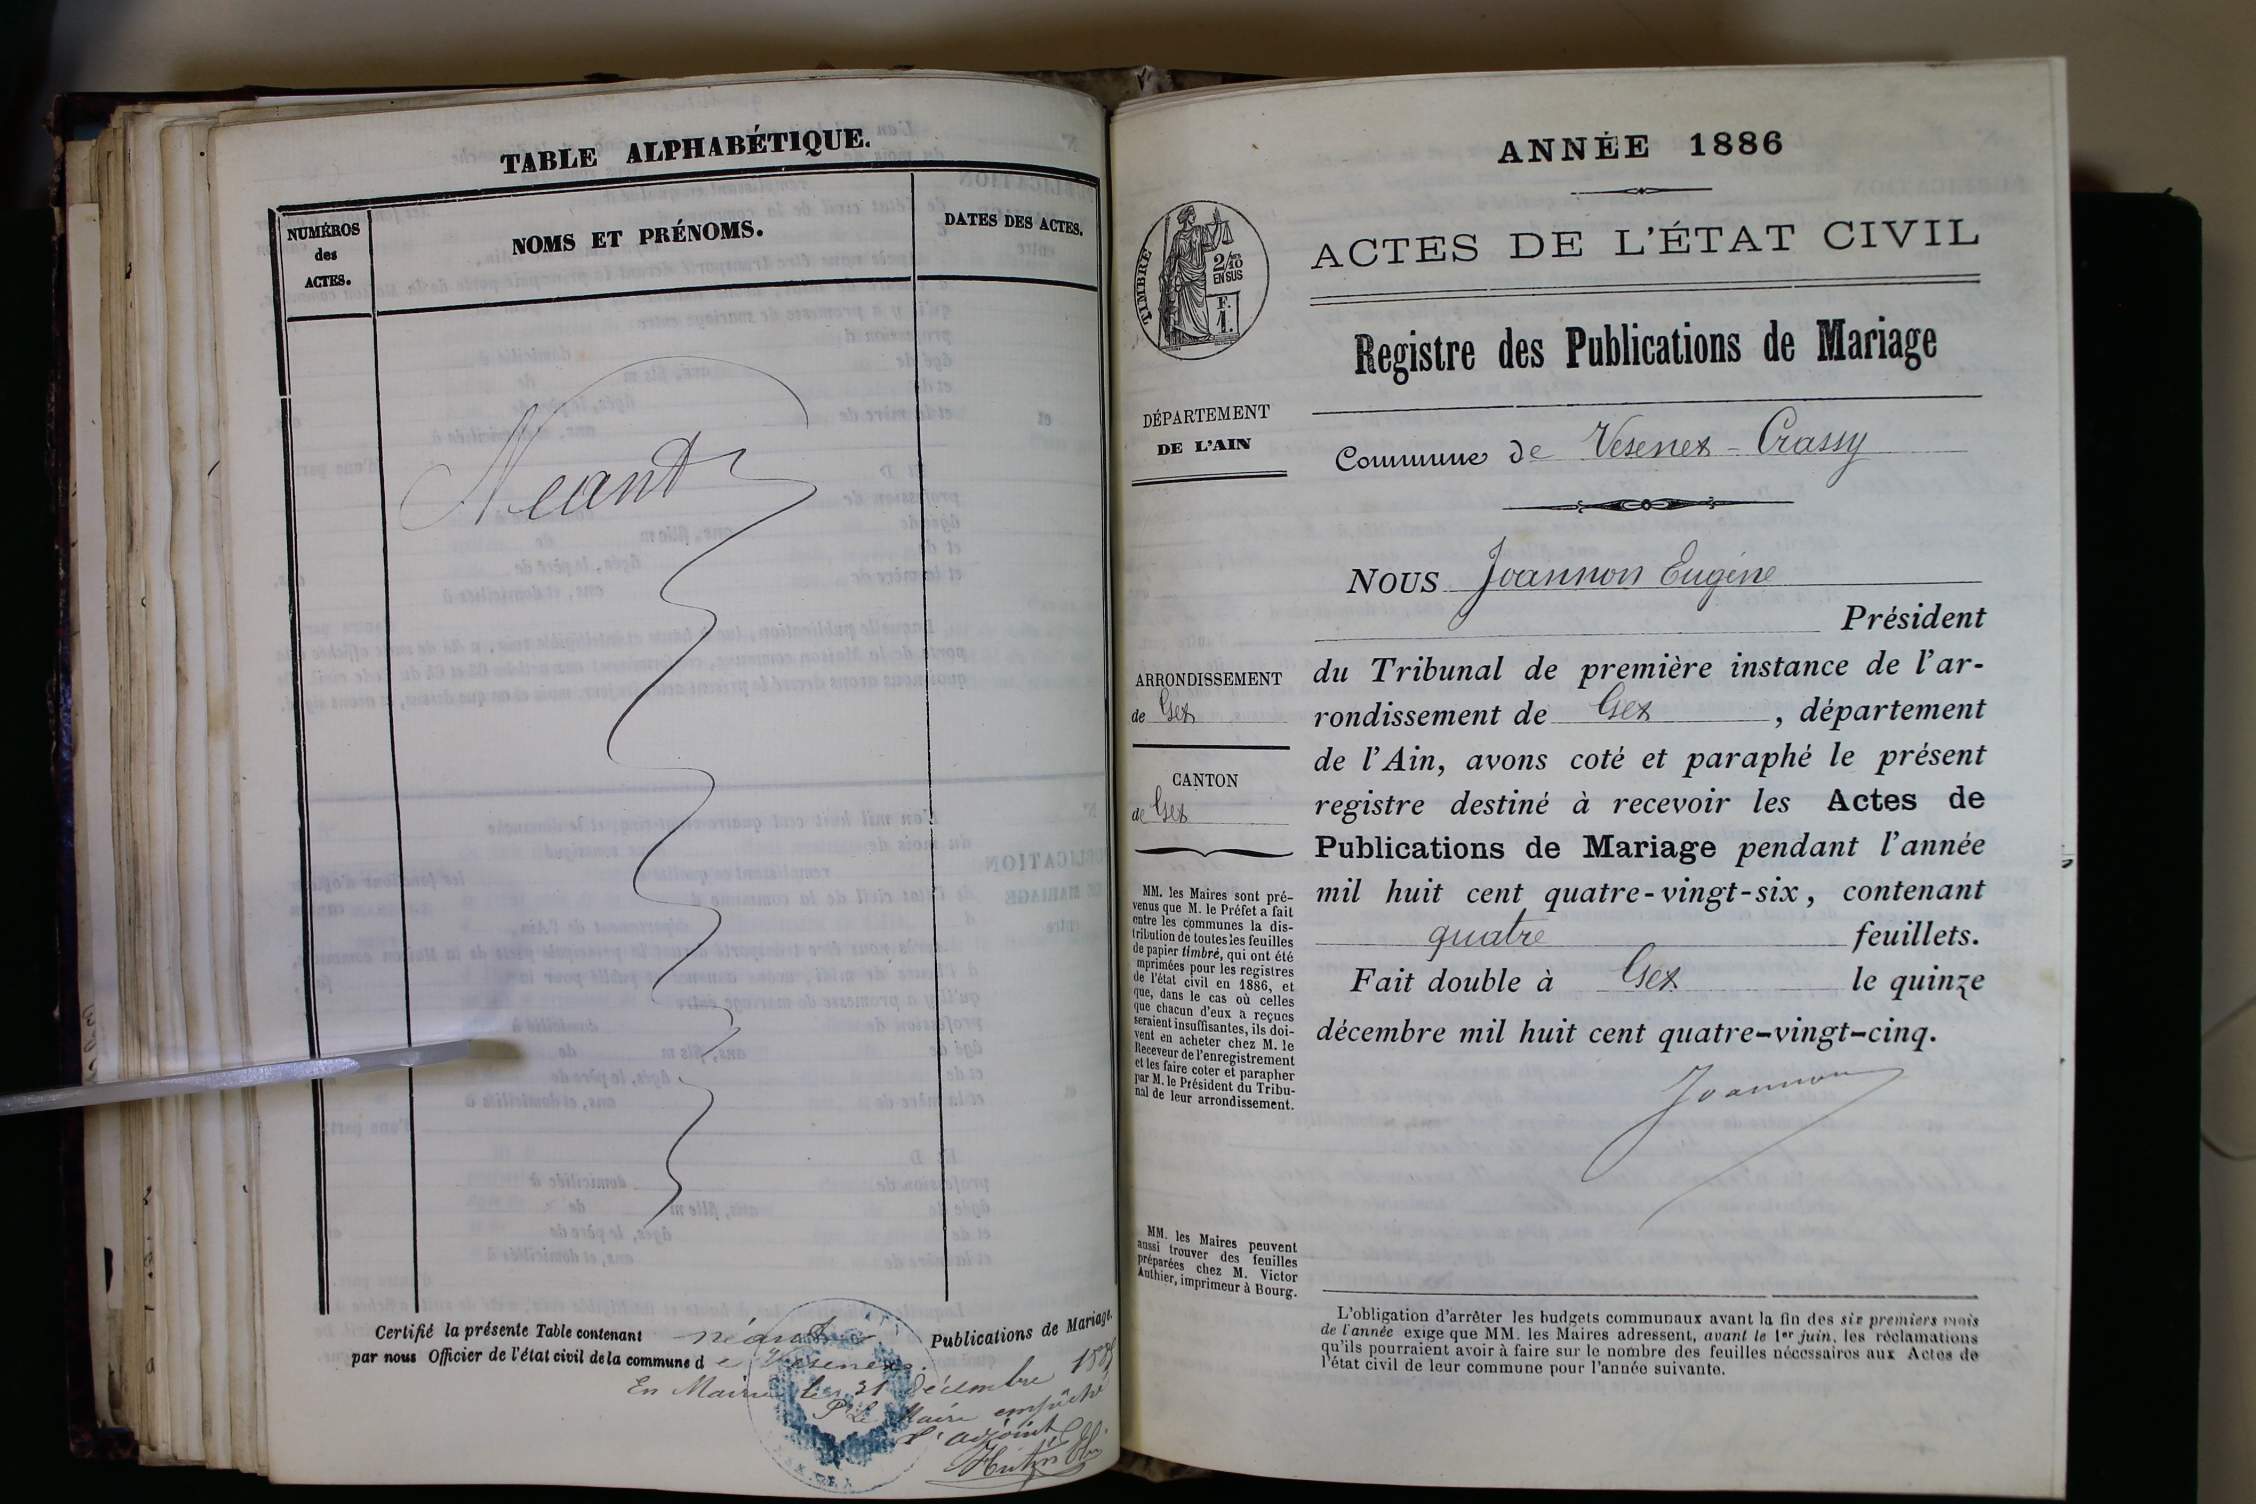 TABLE ALPHABÉTIQUE.
NUMÉROS
des
ACTES.
NOMS ET PRÉNOMS.
DATES DES ACTES.
Néant
Certifié la présente Table contenant néant Publications de Mariage.
par nous Officier de l'état civil de la commune de Vesenex.
En Mairie le 31 Décembre 1885
Pr Le Maire empêché
L'adjoint
ANNÉE 1886
ACTES DE L'ÉTAT CIVIL
TIMBRE
2/10
EN SUS
F.
1.
Registre des Publications de Mariage
DÉPARTEMENT
DE L'AIN
Commune de Vesenex - Crassy
NOUS Joannon Eugène
Président
du Tribunal de première instance de l'ar-
rondissement de Gex, département
de l'Ain, avons coté et paraphé le présent
registre destiné à recevoir les Actes de
Publications de Mariage pendant l'année
mil huit cent quatre-vingt-six, contenant
quatre feuillets.
Fait double à Gex le quinze
décembre mil huit cent quatre-vingt-cinq.
Joannon
ARRONDISSEMENT
de Gex
CANTON
de Gex
MM. les Maires sont pré-
venus que M. le Préfet a fait
entre les communes la dis-
tribution de toutes les feuilles
de papier timbré, qui ont été
imprimées pour les registres
de l'état civil en 1886, et
que, dans le cas où celles
que chacun d'eux a reçues
seraient insuffisantes, ils doi-
vent en acheter chez M. le
Receveur de l'enregistrement
et les faire coter et parapher
par M. le Président du Tribu-
nal de leur arrondissement.
MM. les Maires peuvent
aussi trouver des feuilles
préparées chez M. Victor
Authier, imprimeur à Bourg.
L'obligation d'arrêter les budgets communaux avant la fin des six premiers mois
de l'année exige que MM. les Maires adressent, avant le 1er juin, les réclamations
qu'ils pourraient avoir à faire sur le nombre des feuilles nécessaires aux Actes de
l'état civil de leur commune pour l'année suivante.